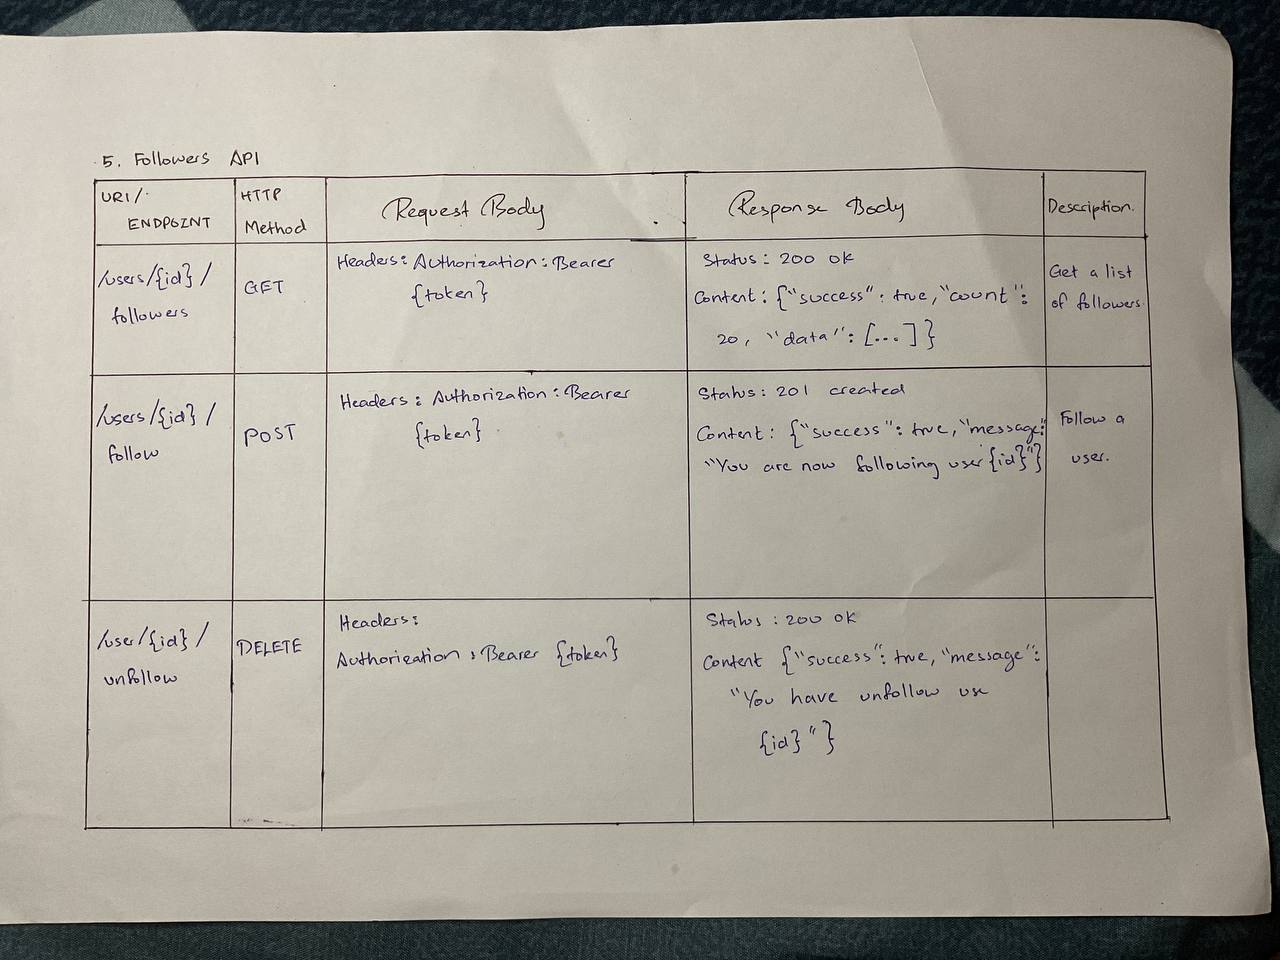 5. Followers API
URI/
ENDPOINT
HTTP
Method
Request Body
Response Body
Description.
/users/{id}/
followers
GET
Headers: Authorization: Bearer
{token}
Status: 200 OK
Content: {"success": true, "count":
20, "data": [...]}
Get a list
of followers.
/users/{id}/
follow
POST
Headers: Authorization: Bearer
{token}
Status: 201 created
Content: {"success": true, "message":
"You are now following user {id}"}
Follow a
user.
/user/{id}/
unfollow
DELETE
Headers:
Authorization: Bearer {token}
Status: 200 OK
Content {"success": true, "message":
"You have unfollow use
{id}"}